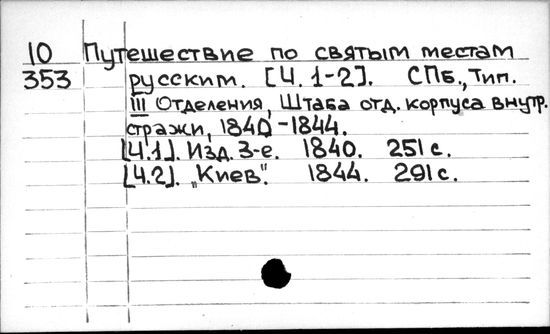 10 Путешествие по святым местам
353 русским. [Ч. 1-2]. СПб., Тип.
III Отделения, Штаба отд. корпуса внутр.
стражи, 1840-1844.
[Ч.1]. Изд. 3-е. 1840. 251 с.
[Ч.2]. „Киев". 1844. 291 с.